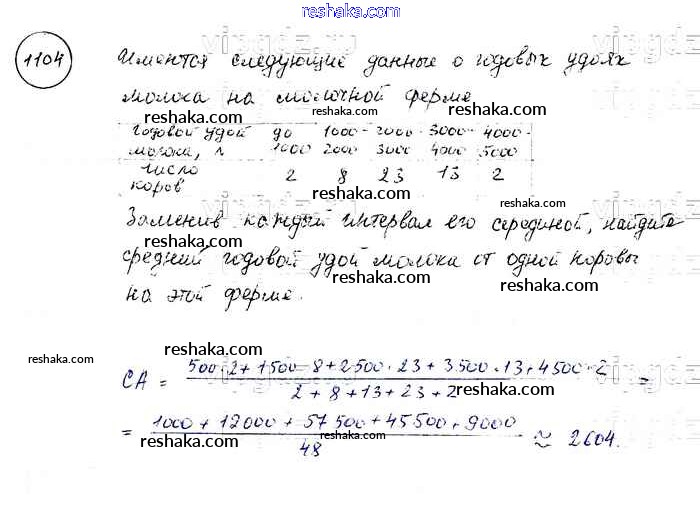 reshaka.com
1104
Имеются следующие данные о годовых удоях
reshaka.com
молока на молочной ферме
reshaka.com reshaka.com
годовой удой до 1000- 2000- 3000- 4000-
молока, л 1000 2000 3000 4000 5000
число коров 2 8 23 13 2
reshaka.com reshaka.com
Заменив каждый интервал его серединой, найдите
reshaka.com reshaka.com
средний годовой удой молока от одной коровы
reshaka.com
на этой ферме.
reshaka.com
reshaka.com reshaka.com
СА = 500·2+1500·8+2500·23+3500·13+4500·2 =
2+8+13+23+2
reshaka.com
= 1000+12000+57500+45500+9000 ≈ 2604.
48
reshaka.com reshaka.com reshaka.com